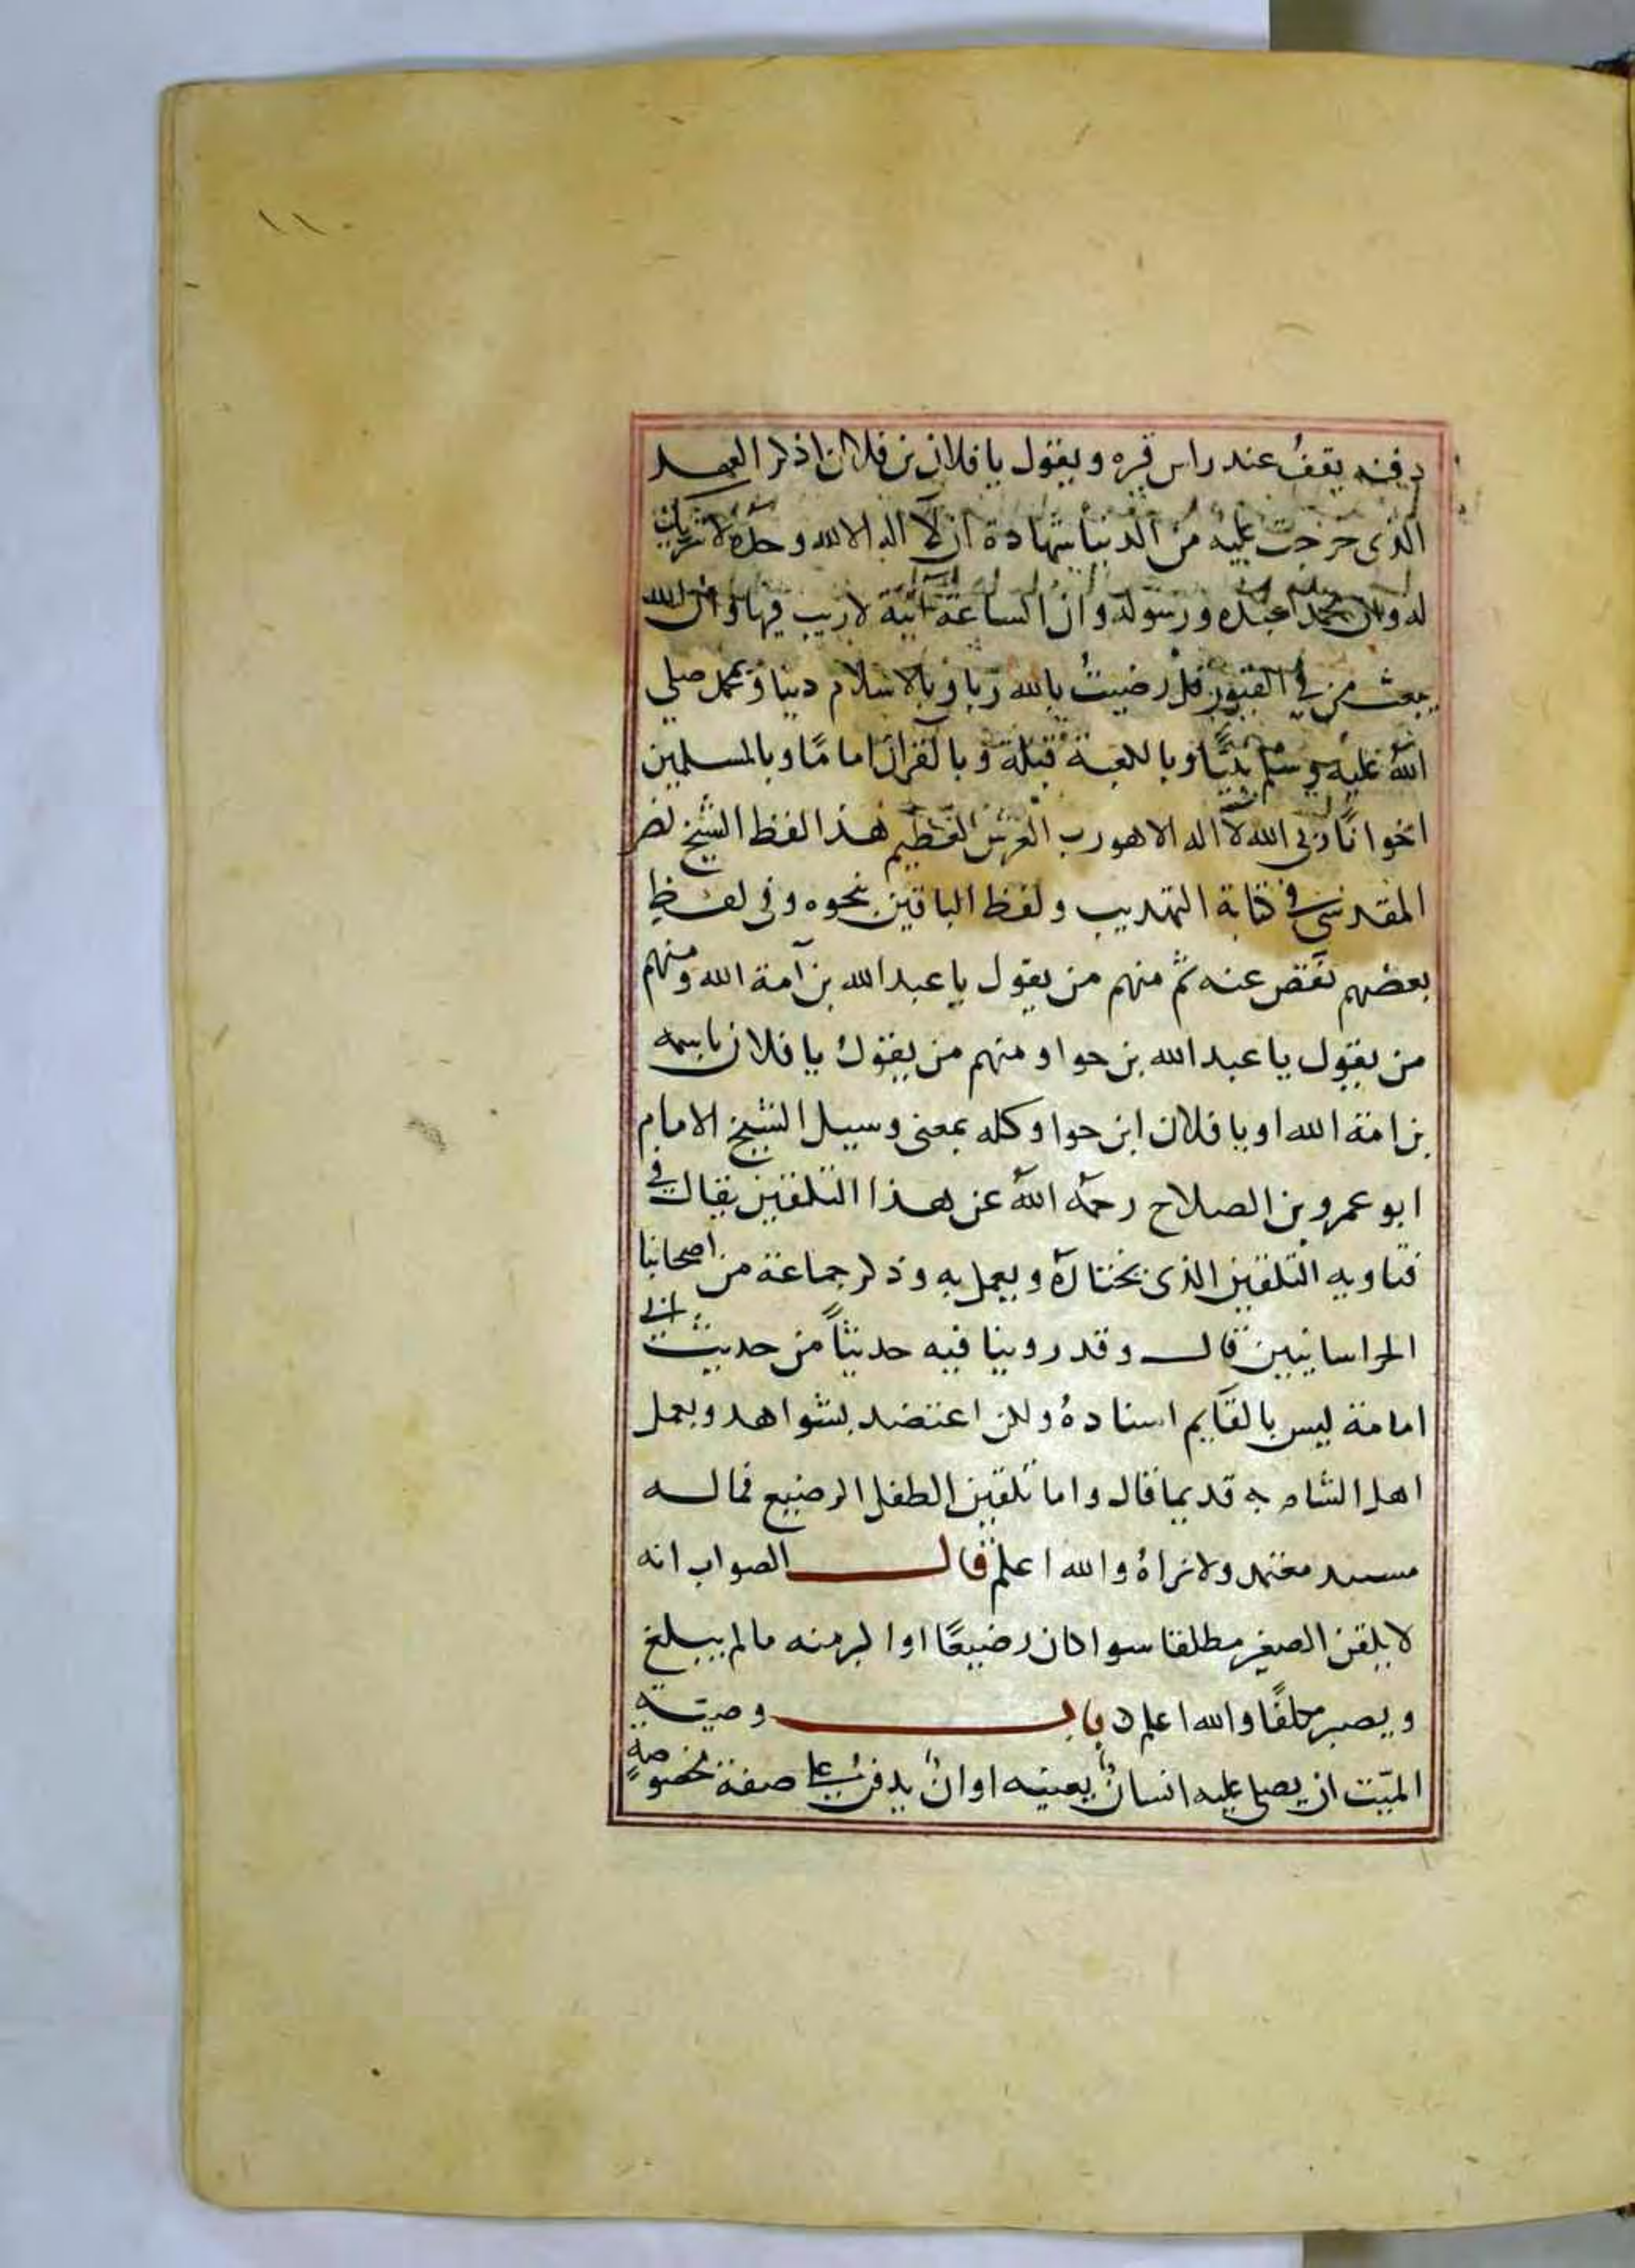 ١١٠
دفنه يقف عند راس قبره ويقول يا فلان بن فلان اذكر العهد
الذى خرجت عليه من الدنيا شهادة ان لا اله الا الله وحده لا شريك
له وان محمدا عبده ورسوله وان الساعة اتية لا ريب فيها وان الله
يبعث من في القبور قل رضيت بالله ربا وبالاسلام دينا وبمحمد صلى
الله عليه وسلم نبيًّا وبالكعبة قبلة وبالقران امامًا وبالمسلمين
اخوانًا ربى الله لا اله الا هو رب العرش العظيم هذا لفظ الشيخ نصر
المقدسى في كتابة التهذيب ولفظ الباقين بنحوه وفى لفظ
بعضهم نقص عنه ثم منهم من يقول يا عبد الله بن آمة الله ومنهم
من يقول يا عبد الله بن حوا ومنهم من يقول يا فلان باسمه
بن امة الله او يا فلان ابن حوا وكله بمعنى وسيل الشيخ الامام
ابو عمرو بن الصلاح رحمه الله عن هذا التلقين فقال في
فتاويه التلقين الذى نختاره ويعمل به وذكر جماعة من اصحابنا
الخراسانيين قال وقد روينا فيه حديثاً من حديث ابى
امامة ليس بالقايم اسناده ولكن اعتضد بشواهد وبعمل
اهل الشام به قديما قال واما تلقين الطفل الرضيع فماله
مسند معتمد ولا نراه والله اعلم قال الصواب انه
لا يلقن الصغير مطلقا سوا كان رضيعًا او اكبر منه ما لم يبلغ
ويصير مكلفًا والله اعلم باب وصية
الميّت ان يصلى عليه انسان بعينه او ان يدفن على صفة مخصوصة